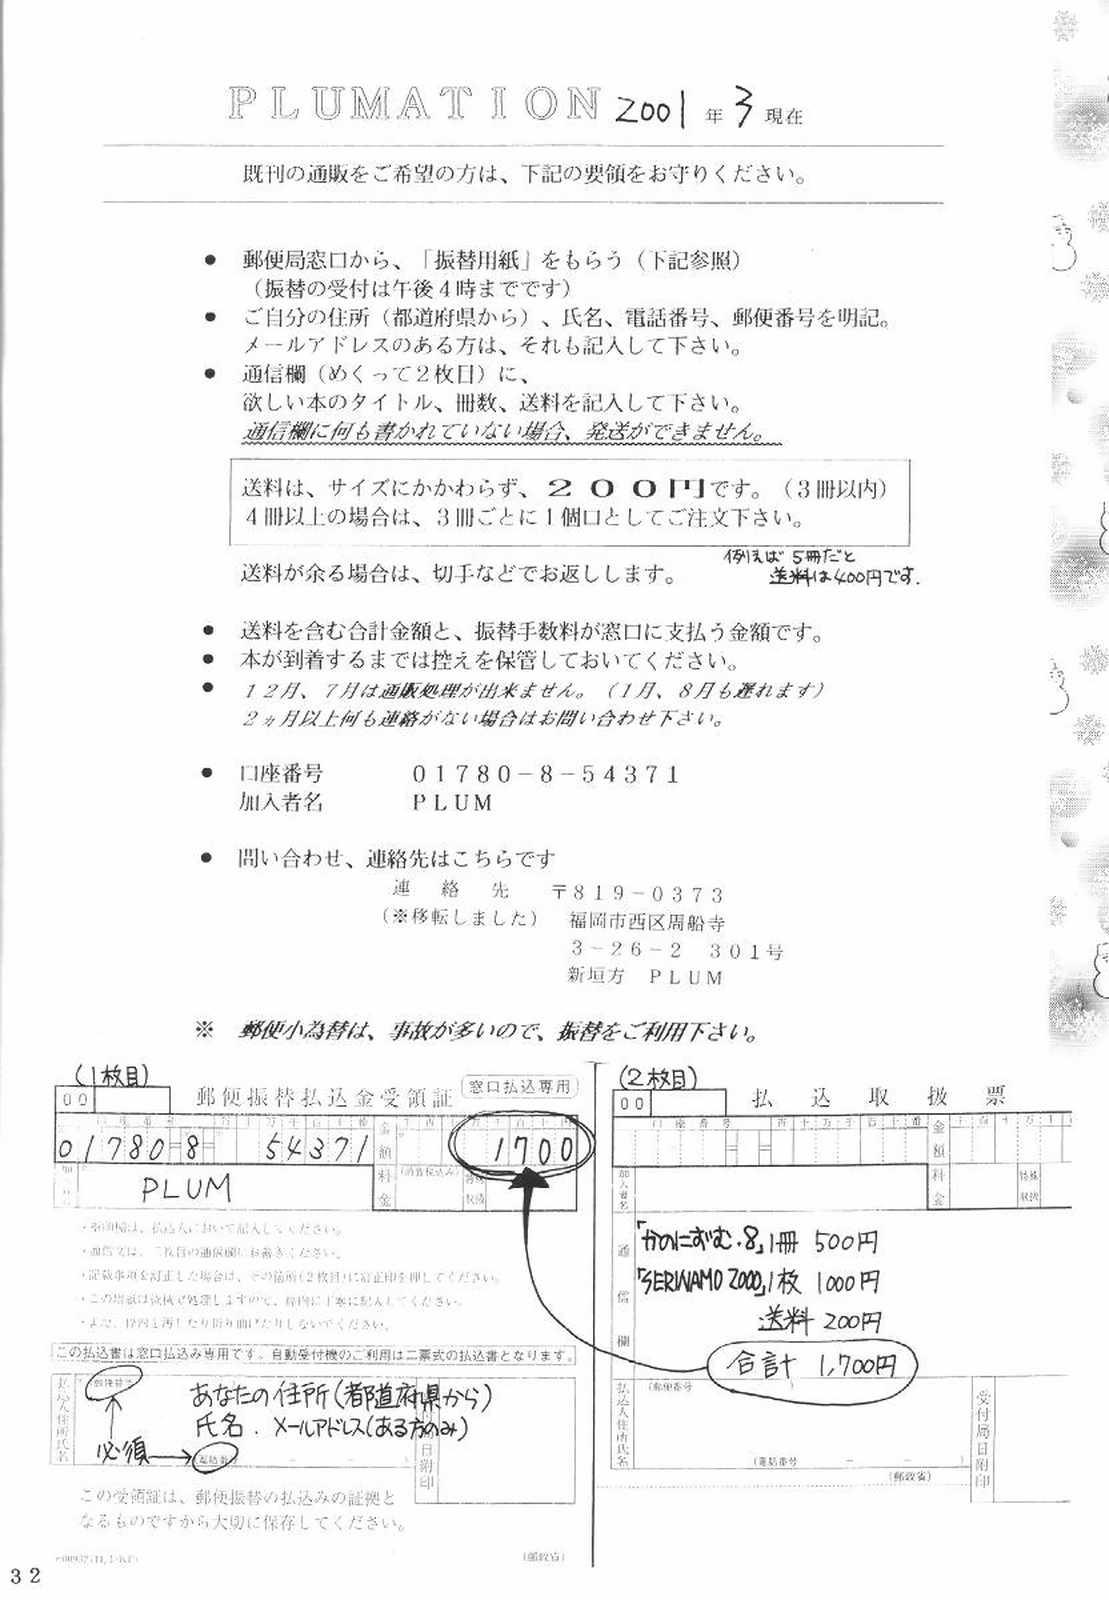 PLUMATION 2001年3現在
既刊の通販をご希望の方は、下記の要領をお守りください。
● 郵便局窓口から、「振替用紙」をもらう（下記参照）
（振替の受付は午後４時までです）
● ご自分の住所（都道府県から）、氏名、電話番号、郵便番号を明記。
メールアドレスのある方は、それも記入して下さい。
● 通信欄（めくって２枚目）に、
欲しい本のタイトル、冊数、送料を記入して下さい。
通信欄に何も書かれていない場合、発送ができません。
送料は、サイズにかかわらず、２００円です。（３冊以内）
４冊以上の場合は、３冊ごとに１個口としてご注文下さい。
例えば 5冊だと
送料は400円です.
送料が余る場合は、切手などでお返しします。
● 送料を含む合計金額と、振替手数料が窓口に支払う金額です。
● 本が到着するまでは控えを保管しておいてください。
● １２月、７月は通販処理が出来ません。（１月、８月も遅れます）
２ヵ月以上何も連絡がない場合はお問い合わせ下さい。
● 口座番号 ０１７８０－８－５４３７１
加入者名 ＰＬＵＭ
● 問い合わせ、連絡先はこちらです
連絡先 〒８１９－０３７３
（※移転しました） 福岡市西区周船寺
３－２６－２ ３０１号
新垣方 ＰＬＵＭ
※ 郵便小為替は、事故が多いので、振替をご利用下さい。
(1枚目)
00 郵便振替払込金受領証 窓口払込専用
口座番号 百十万千百十番
01780=8= 54371 金額 1700
PLUM 料金 (消費税込み) 特殊取扱
・記載事項を訂正した場合は、その箇所(2枚目)に訂正印を押してください。
この払込書は窓口払込み専用です。自動受付機のご利用は二票式の払込書となります。
払込人住所氏名
あなたの住所(都道府県から)
氏名. メールアドレス(ある方のみ)
必須
日附印
この受領証は、郵便振替の払込みの証拠と
なるものですから大切に保存してください。
(郵政省)
(2枚目)
00 払込取扱票
口座番号 百十万千百十番 金額
加入者名 料金 特殊取扱
通信欄
「かのにずむ.8」1冊 500円
「SERIWAMO 2000」1枚 1000円
送料 200円
合計 1,700円
払込人住所氏名 (郵便番号 )
(電話番号 － － )
(郵政省)
受付局日附印
32